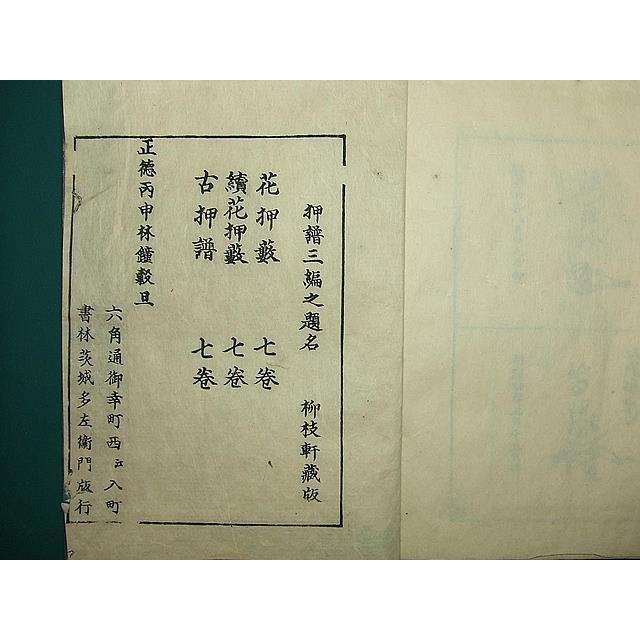 押譜三編之題名 柳枝軒藏版
花押藪 七卷
續花押藪 七卷
古押譜 七卷
正德丙申林鐘穀旦
六角通御幸町西江入町
書林茨城多左衛門版行